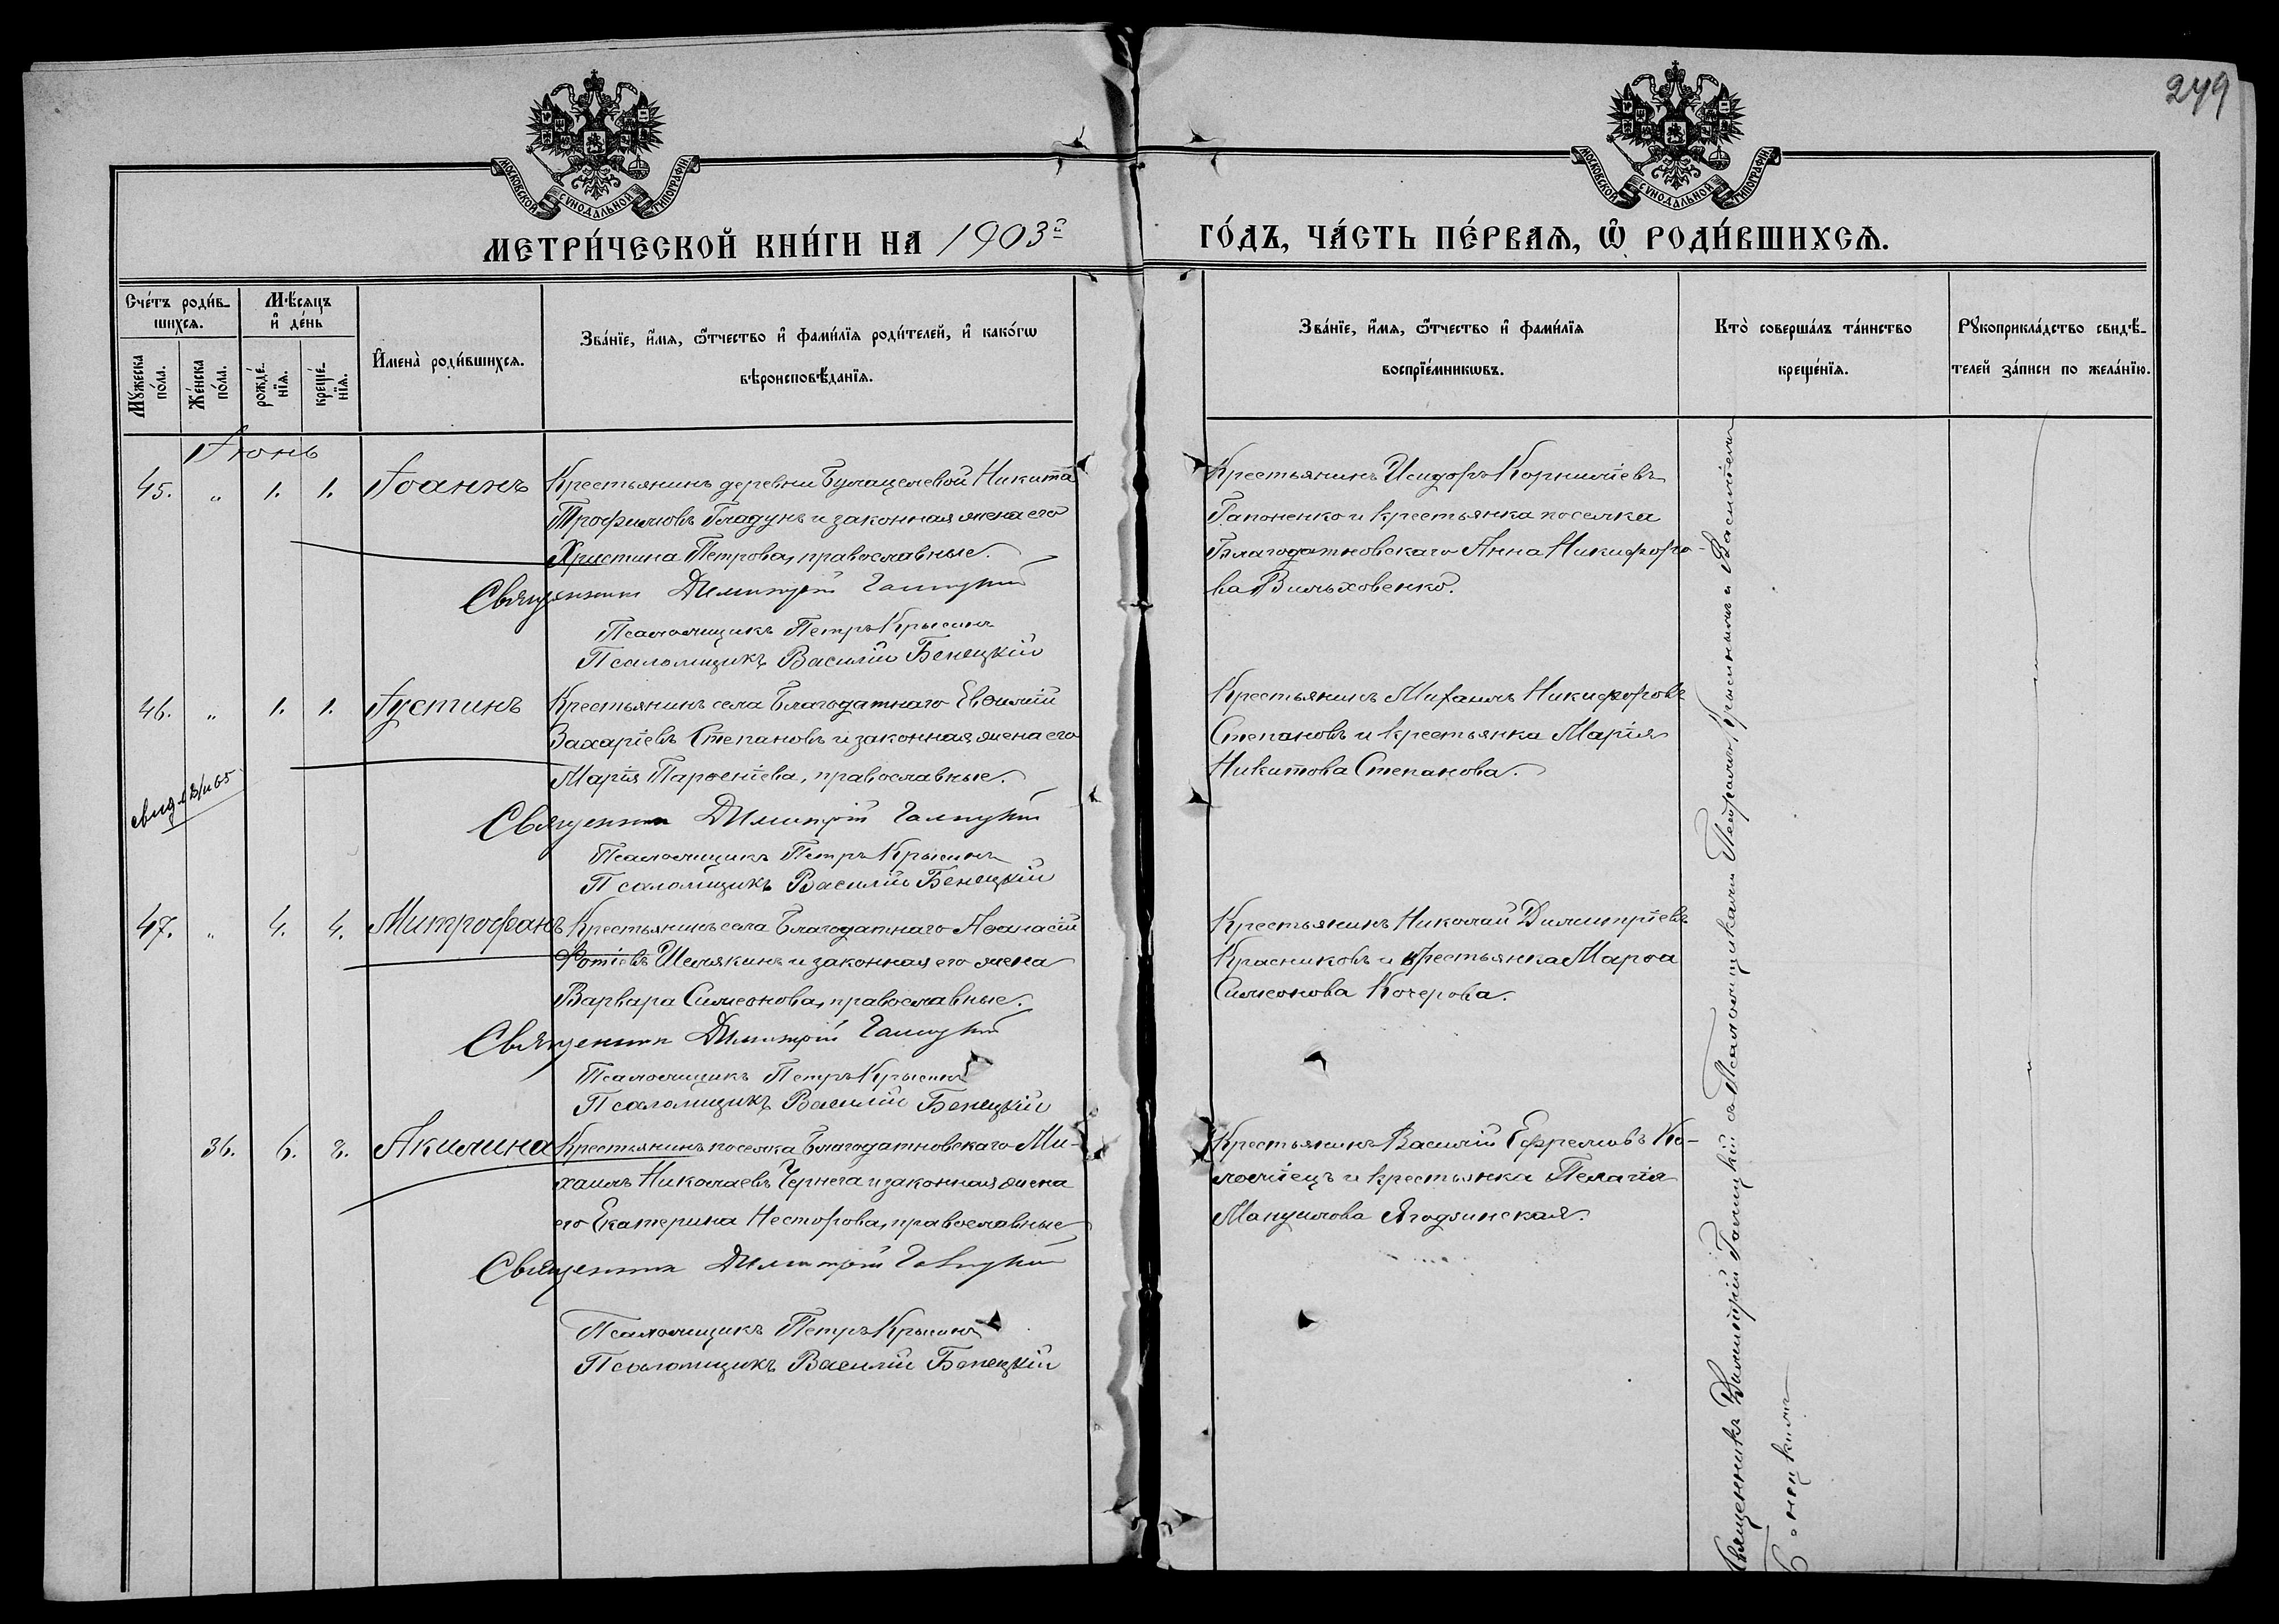 249
МОСКОВСКОЙ СѴНОДАЛЬНОЙ ТИПОГРАФІИ
МОСКОВСКОЙ СѴНОДАЛЬНОЙ ТИПОГРАФІИ
МЕТРИ́ЧЕСКОЙ КНИ́ГИ НА 1903й
ГО́ДЪ, ЧА́СТЬ ПЕ́РВАѦ, Ѽ РОДИ́ВШИХСѦ.
Счетъ роди́в-
шихсѧ.
Мѣ́сѧцъ
и де́нь
Мꙋжеска по́ла.
Же́нска по́ла.
рожде́-
нїѧ.
креще́-
нїѧ.
Имена̀ роди́вшихсѧ.
Зва́нїе, и́мѧ, ѻ́тчество и фами́лїѧ роди́телей, и како́гѡ
вѣроисповѣ́данїѧ.
Зва́нїе, и́мѧ, ѻ́тчество и фами́лїѧ
воспрїе́мникѡвъ.
Кто̀ соверша́лъ та́инство
креще́нїѧ.
Рꙋкоприкла́дство свидѣ́-
телей за́писи по жела́нїю.
Іюнь
45. " 1. 1. Іоаннъ
Крестьянинъ деревни Булацелевой Никита
Трофимовъ Гладунъ и законная жена его
Христина Петрова, православные.
Священник Димитрій Галицкий
Псаломщикъ Петръ Крысинъ
Псаломщикъ Василій Бенецкій
Крестьянинъ Исидоръ Корниліевъ
Гапоненко и крестьянка поселка
Благодатновскаго Анна Никифоро-
ва Вильховенко.
46. " 1. 1. Іустинъ
Крестьянинъ села Благодатнаго Евѳимій
Захаріевъ Степановъ и законная жена его
Марія Парѳеніева, православные.
Священник Димитрій Галицкий
Псаломщикъ Петръ Крысинъ
Псаломщикъ Василій Бенецкій
Крестьянинъ Михаилъ Никифоровъ
Степановъ и крестьянка Марія
Никитова Степанова.
свид.
47. " 4. 4. Митрофанъ
Крестьянинъ села Благодатнаго Аѳанасій
Фотіевъ Шелякинъ и законная его жена
Варвара Симеонова, православные.
Священник Димитрій Галицкий
Псаломщикъ Петръ Крысинъ
Псаломщикъ Василій Бенецкій
Крестьянинъ Николай Димитріевъ
Красниковъ и крестьянка Марѳа
Симеонова Кочерова.
36. 6. 8. Акилина
Крестьянинъ поселка Благодатновскаго Ми-
хаилъ Николаевъ Чернега и законная жена
его Екатерина Несторова, православные
Священник Димитрій Галицкий
Псаломщикъ Петръ Крысинъ
Псаломщикъ Василій Бенецкій
Крестьянинъ Василій Ефремовъ Ко-
ломіецъ и крестьянка Пелагія
Мануилова Ягодзинская.
Священникъ Димитрій Галицкій съ Псаломщиками Петромъ Крысинымъ и Василіемъ
Бенецкимъ